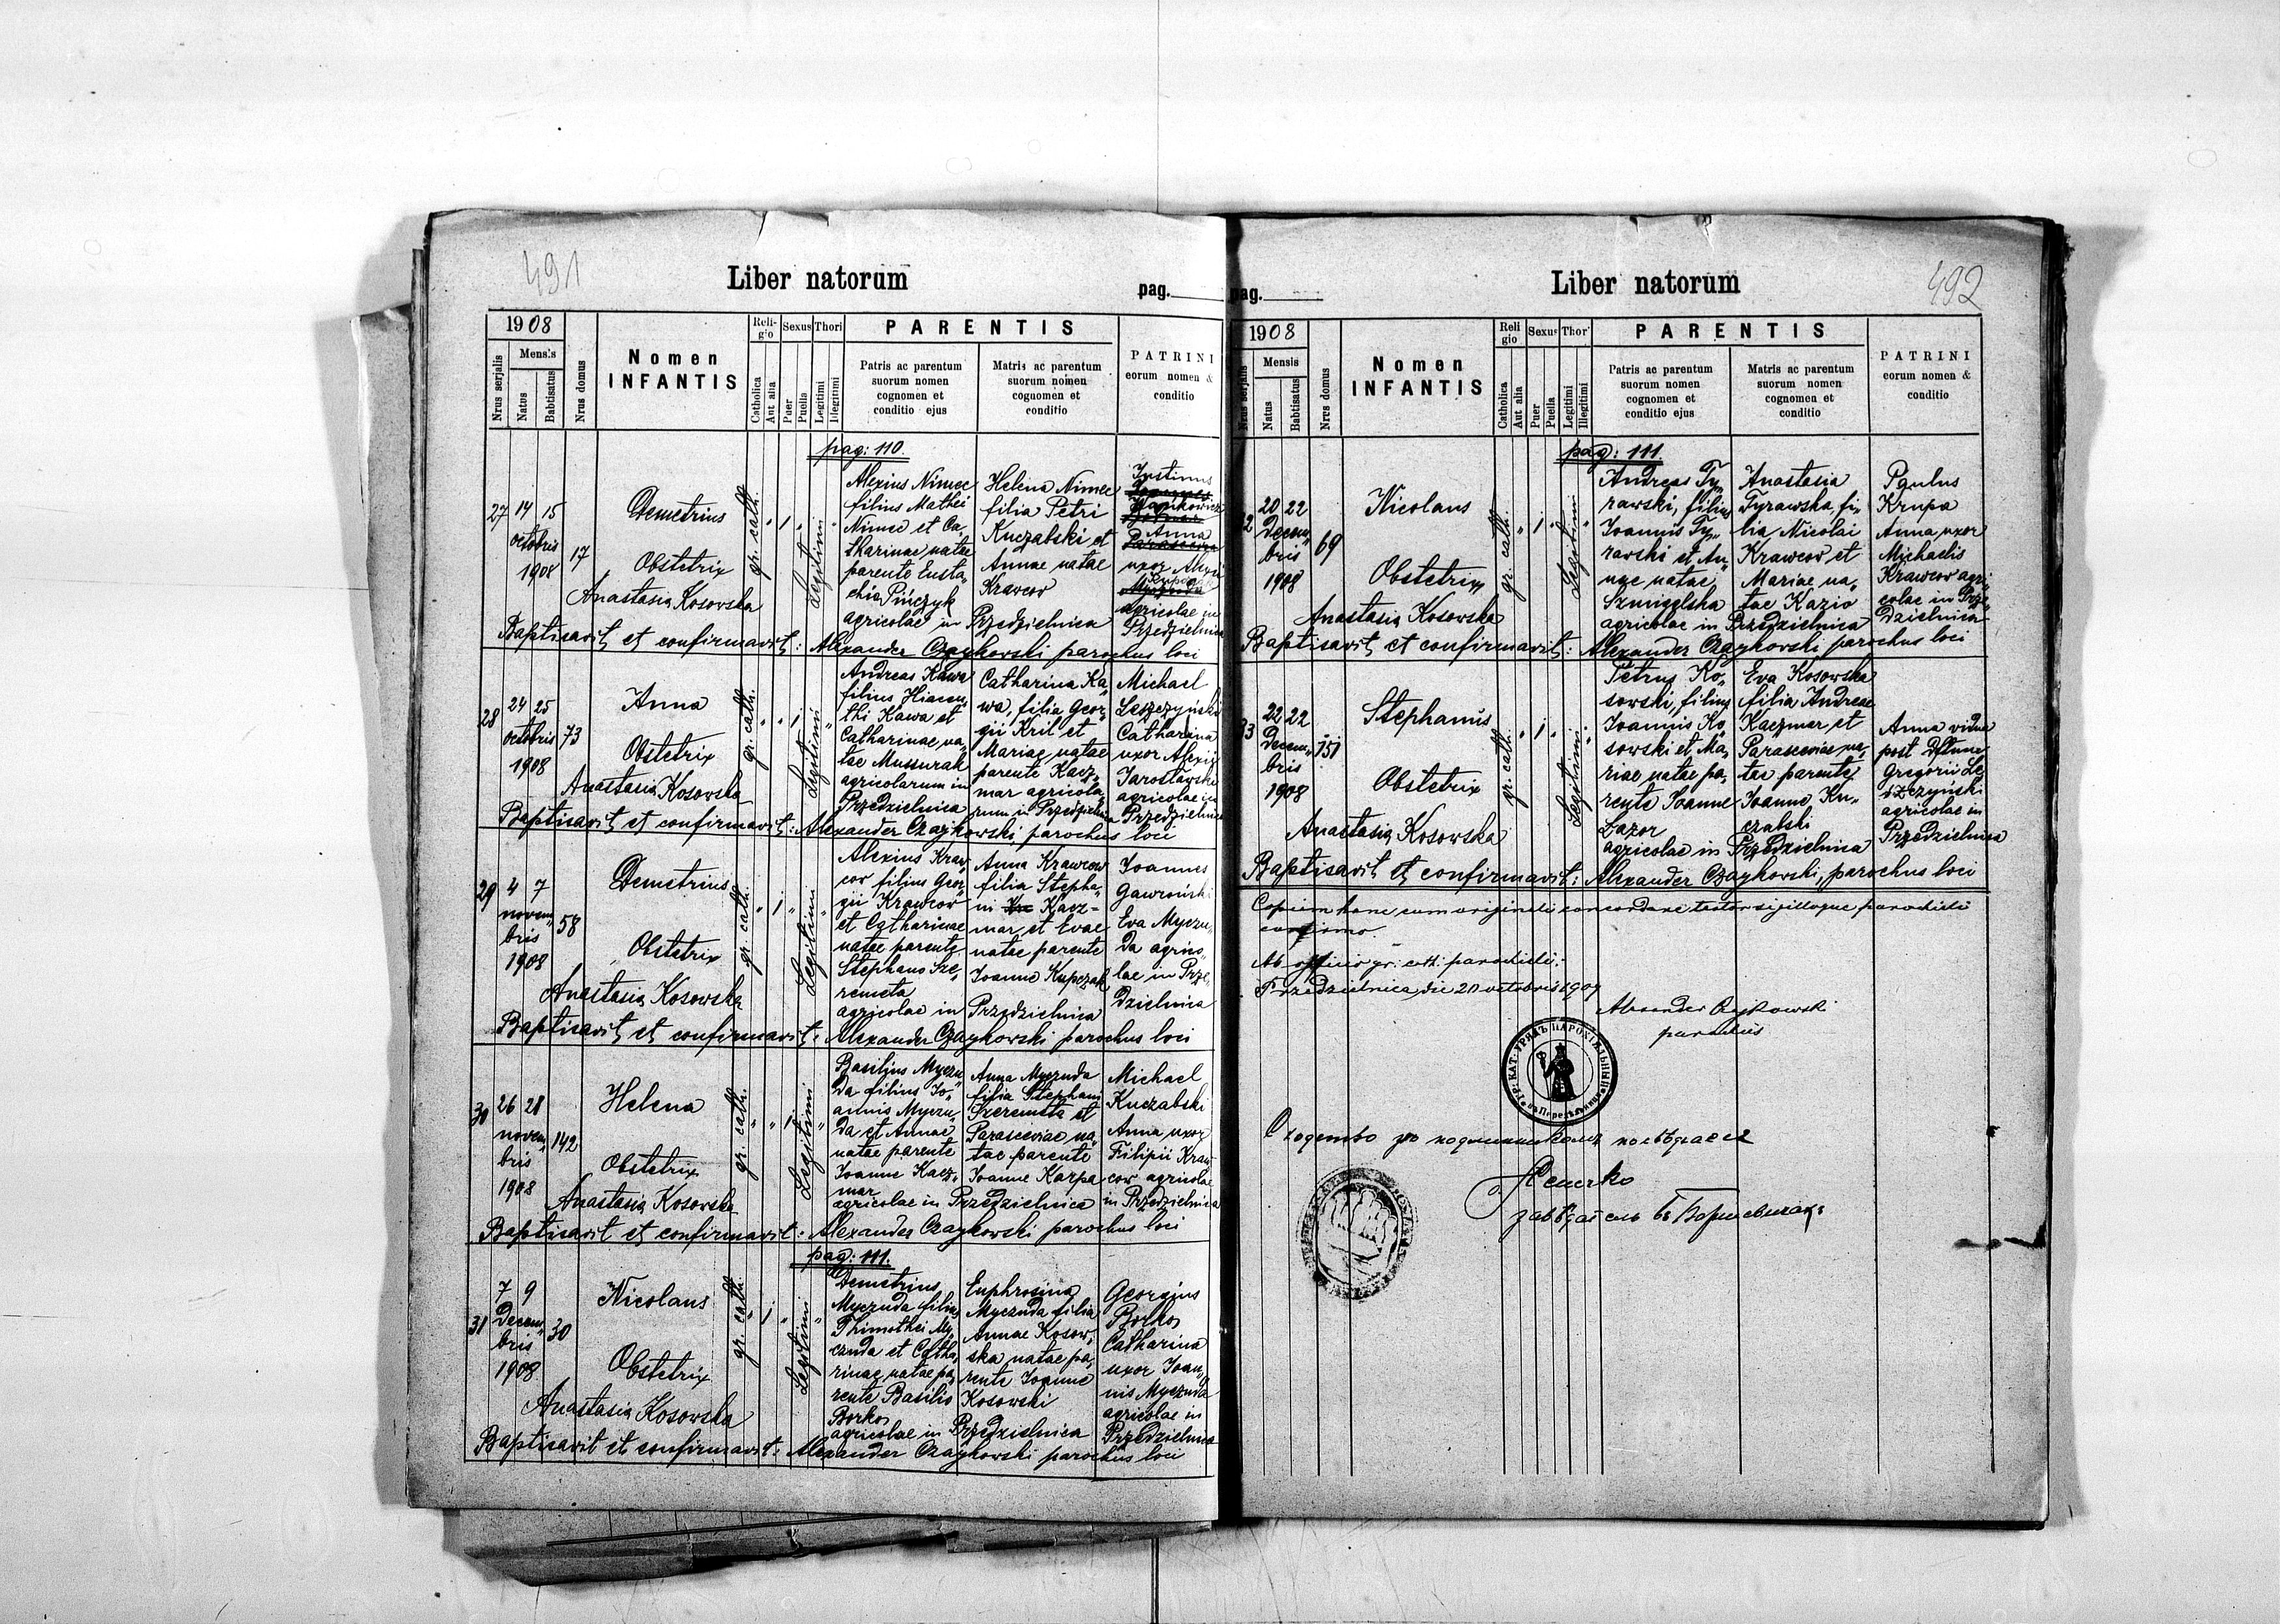 491
Liber natorum
pag.
1908
Nrus serjalis
Mensis
Natus
Babtisatus
Nrus domus
Nomen
INFANTIS
Religio
Catholica
Aut alia
Sexus
Puer
Puella
Thori
Legitimi
Illegitimi
PARENTIS
Patris ac parentum
suorum nomen
cognomen et
conditio ejus
Matris ac parentum
suorum nomen
cognomen et
conditio
PATRINI
eorum nomen &
conditio
pag: 110.
27
14 15
octobris
1908
17
Demetrius
Obstetrix
Anastasia Kosowska
gr. cath.
" 1 "
Legitimi
Alexius Nimec
filius Mathei
Nimec et Ca„
tharinae natae
parente Eusta„
chio Pińczyk
agricolae in Przedzielnica
Helena Nimec
filia Petri
Kuczabski et
Annae natae
Krawcow
Justinus
Anna
uxor Alexii
agricolae in
Przedzielnica
Baptisavit et confirmavit: Alexander Czaykowski parochus loci
28
24 25
octobris
1908
73
Anna
Obstetrix
Anastasia Kosowska
gr. cath.
" " 1
Legitimi
Andreas Kawa
filius Hiacen„
thi Kawa et
Catharinae na„
tae Mussurak
agricolarum in
Przedzielnica
Catharina Ka„
wa, filia Geor„
gii Kril et
Mariae natae
parente Kacz„
mar agricola„
rum in Przedzielnica
Michael
Leszczyński
Catharina
uxor Alexii
Jarosławski
agricolae in
Przedzielnica
Baptisavit et confirmavit: Alexander Czaykowski, parochus loci
29
4 7
novem„
bris
1908
58
Demetrius
Obstetrix
Anastasia Kosowska
gr. cath.
" 1 "
Legitimi
Alexius Kraw„
cow filius Geor„
gii Krawcow
et Catharinae
natae parente
Stephano Sze„
remeta
agricolae in Przedzielnica
Anna Krawcow
filia Stepha„
ni Kacz-
mar et Evae
natae parente
Joanne Kupczak
Joannes
Gawroński
Eva Myczu„
da agrico„
lae in Prze„
dzielnica
Baptisavit et confirmavit: Alexander Czaykowski parochus loci
30
26 28
novem„
bris
1908
142
Helena
Obstetrix
Anastasia Kosowska
gr. cath.
" " 1
Legitimi
Basilius Myczu„
da filius Jo„
annis Myczu„
da et Annae
natae parente
Joanne Kacz„
mar
agricolae in Przedzielnica
Anna Myczuda
filia Stephani
Szeremeta et
Parasceviae na„
tae parente
Joanne Karpa
Michael
Kuczabski
Anna uxor
Filipii Kraw„
cow agricolae
in Przedzielnica
Baptisavit et confirmavit: Alexander Czaykowski parochus loci
pag: 111.
31
7 9
Decem„
bris
1908
30
Nicolaus
Obstetrix
Anastasia Kosowska
gr. cath.
" 1 "
Legitimi
Demetrius
Myczuda filius
Thimothei My„
czuda et Catha„
rinae natae pa„
rente Basilio
Borko
agricolae in Przedzielnica
Euphrosina
Myczuda filia
Annae Kosow„
ska natae pa„
rente Joanne
Kosowski
Georgius
Borko
Catharina
uxor Joan„
nis Myczuda
agricolae in
Przedzielnica
Baptisavit et confirmavit: Alexander Czaykowski parochus loci
492
Liber natorum
pag.
1908
Nrus serjalis
Mensis
Natus
Babtisatus
Nrus domus
Nomen
INFANTIS
Religio
Catholica
Aut alia
Sexus
Puer
Puella
Thori
Legitimi
Illegitimi
PARENTIS
Patris ac parentum
suorum nomen
cognomen et
conditio ejus
Matris ac parentum
suorum nomen
cognomen et
conditio
PATRINI
eorum nomen &
conditio
pag: 111.
32
20 22
Decem„
bris
1908
69
Nicolaus
Obstetrix
Anastasia Kosowska
gr. cath.
" 1 "
Legitimi
Andreas Ty„
rawski, filius
Joannis Ty„
rawski et An„
nae natae
Szmigelska
agricolae in Przedzielnica
Anastasia
Tyrawska, fi„
lia Nicolai
Krawcow et
Mariae na„
tae Kazio
Paulus
Krupa
Anna uxor
Michaelis
Krawcow agri„
colae in Prze„
dzielnica
Baptisavit et confirmavit: Alexander Czaykowski parochus loci
33
22 22
Decem„
bris
1908
151
Stephanus
Obstetrix
Anastasia Kosowska
gr. cath.
" 1 "
Legitimi
Petrus Ko„
sowski, filius
Joannis Ko„
sowski et Ma„
riae natae pa„
rente Joanne
Lazor
agricolae in Przedzielnica
Eva Kosowska
filia Andreae
Kaczmar et
Parasceviae na„
tae parente
Joanne Ku„
czabski
Anna vidua
post
Gregorii Le„
szczyński
agricolae in
Przedzielnica
Baptisavit et confirmavit: Alexander Czaykowski, parochus loci
Copiam hanc cum originali concordare testor sigilloque parochiali
confirmo.
Ab officio gr: cath: parochiali.
Przedzielnica, die 20 octobris 1909
Alexander Czaykowski
parochus
ГР: КАТ: УРЯДЪ ПАРОХІЯЛЬНЫЙ